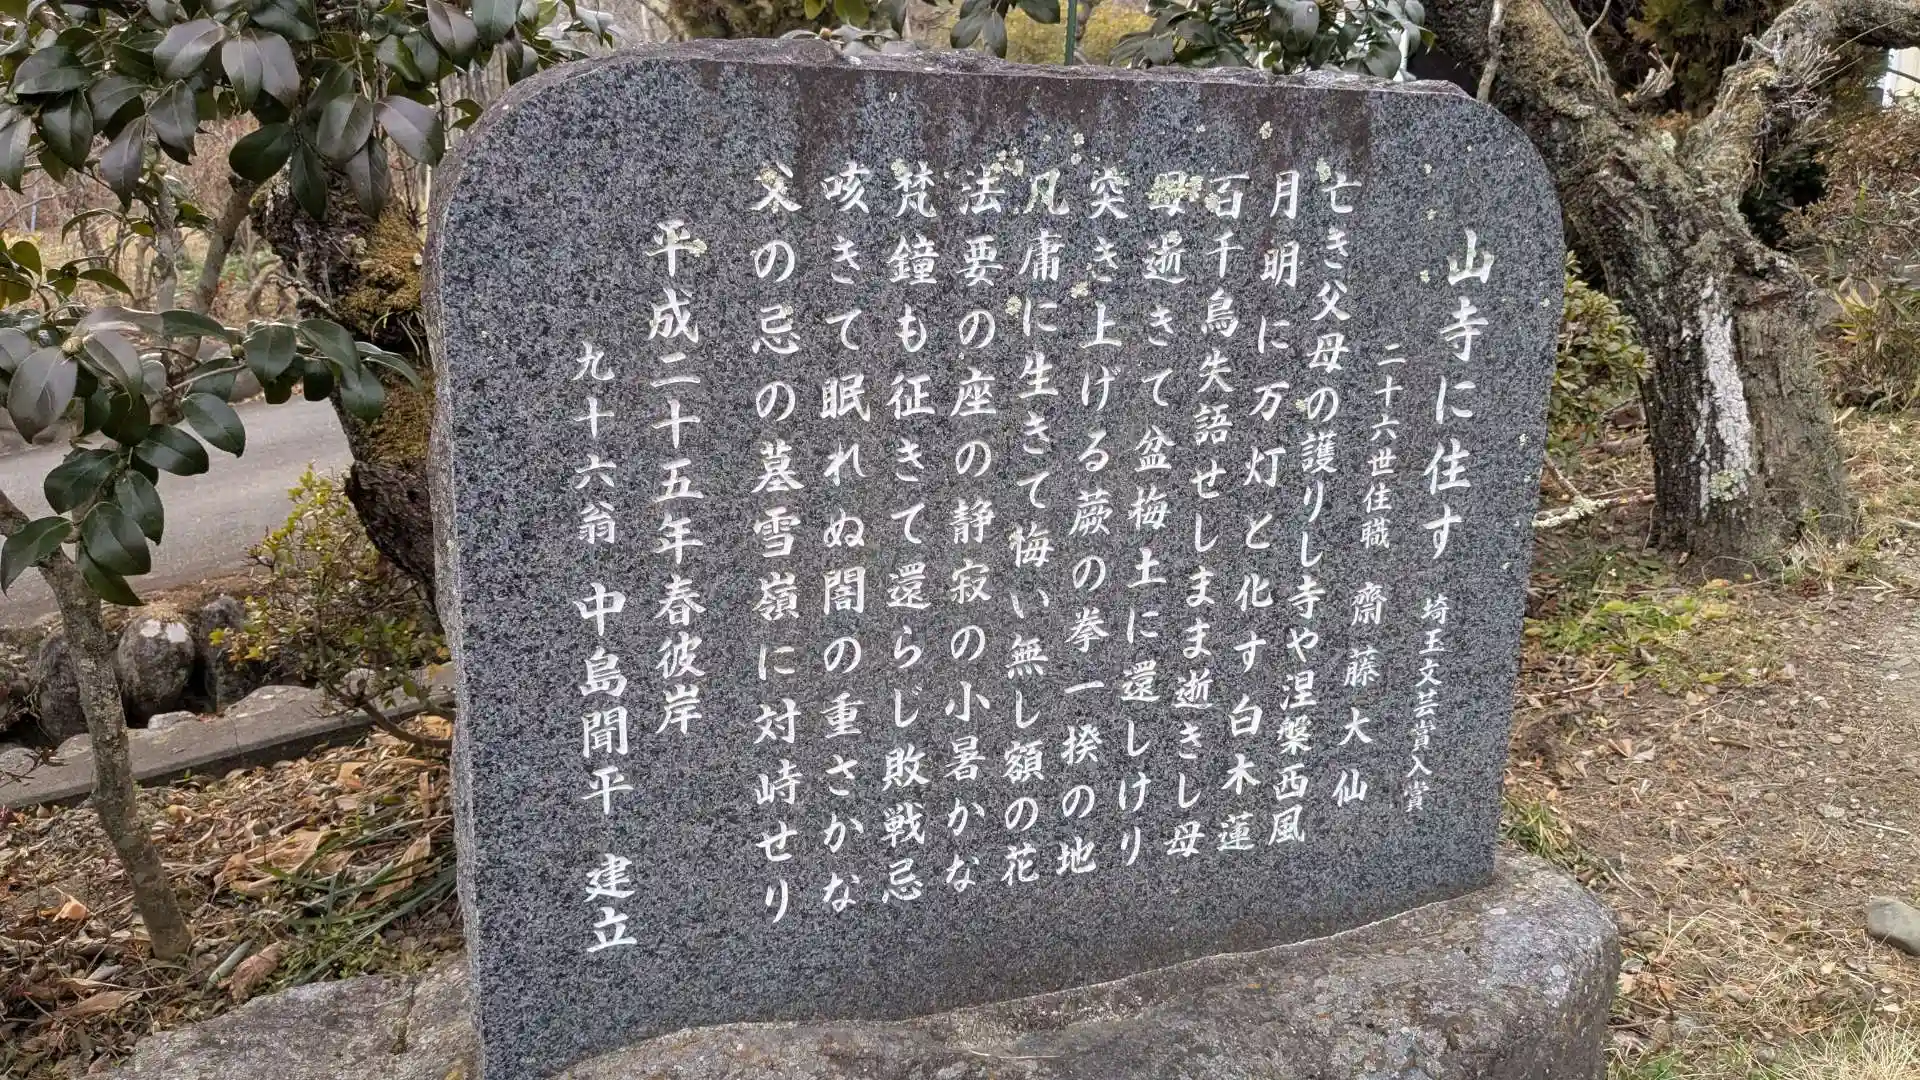 山寺に住す 埼玉文芸賞入賞
二十六世住職 齋藤大仙
亡き父母の護りし寺や涅槃西風
月明に万灯と化す白木蓮
百千鳥失語せしまま逝きし母
母逝きて盆梅土に還しけり
突き上げる蕨の拳一揆の地
凡庸に生きて悔い無し額の花
法要の座の静寂の小暑かな
梵鐘も征きて還らじ敗戦忌
咳きて眠れぬ闇の重さかな
父の忌の墓雪嶺に対峙せり
平成二十五年春彼岸
九十六翁 中島聞平 建立